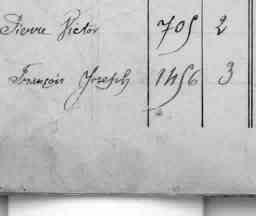 Pierre Victor 705 2
François Joseph 1456 3